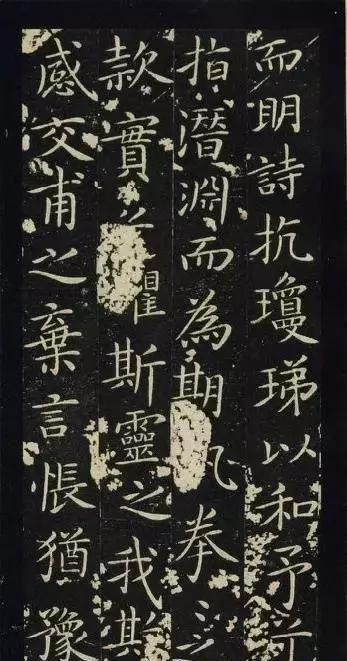 而明詩抗瓊珶以和予
指潛淵而為期拳
款實懼斯靈之我
感交甫之棄言悵猶豫